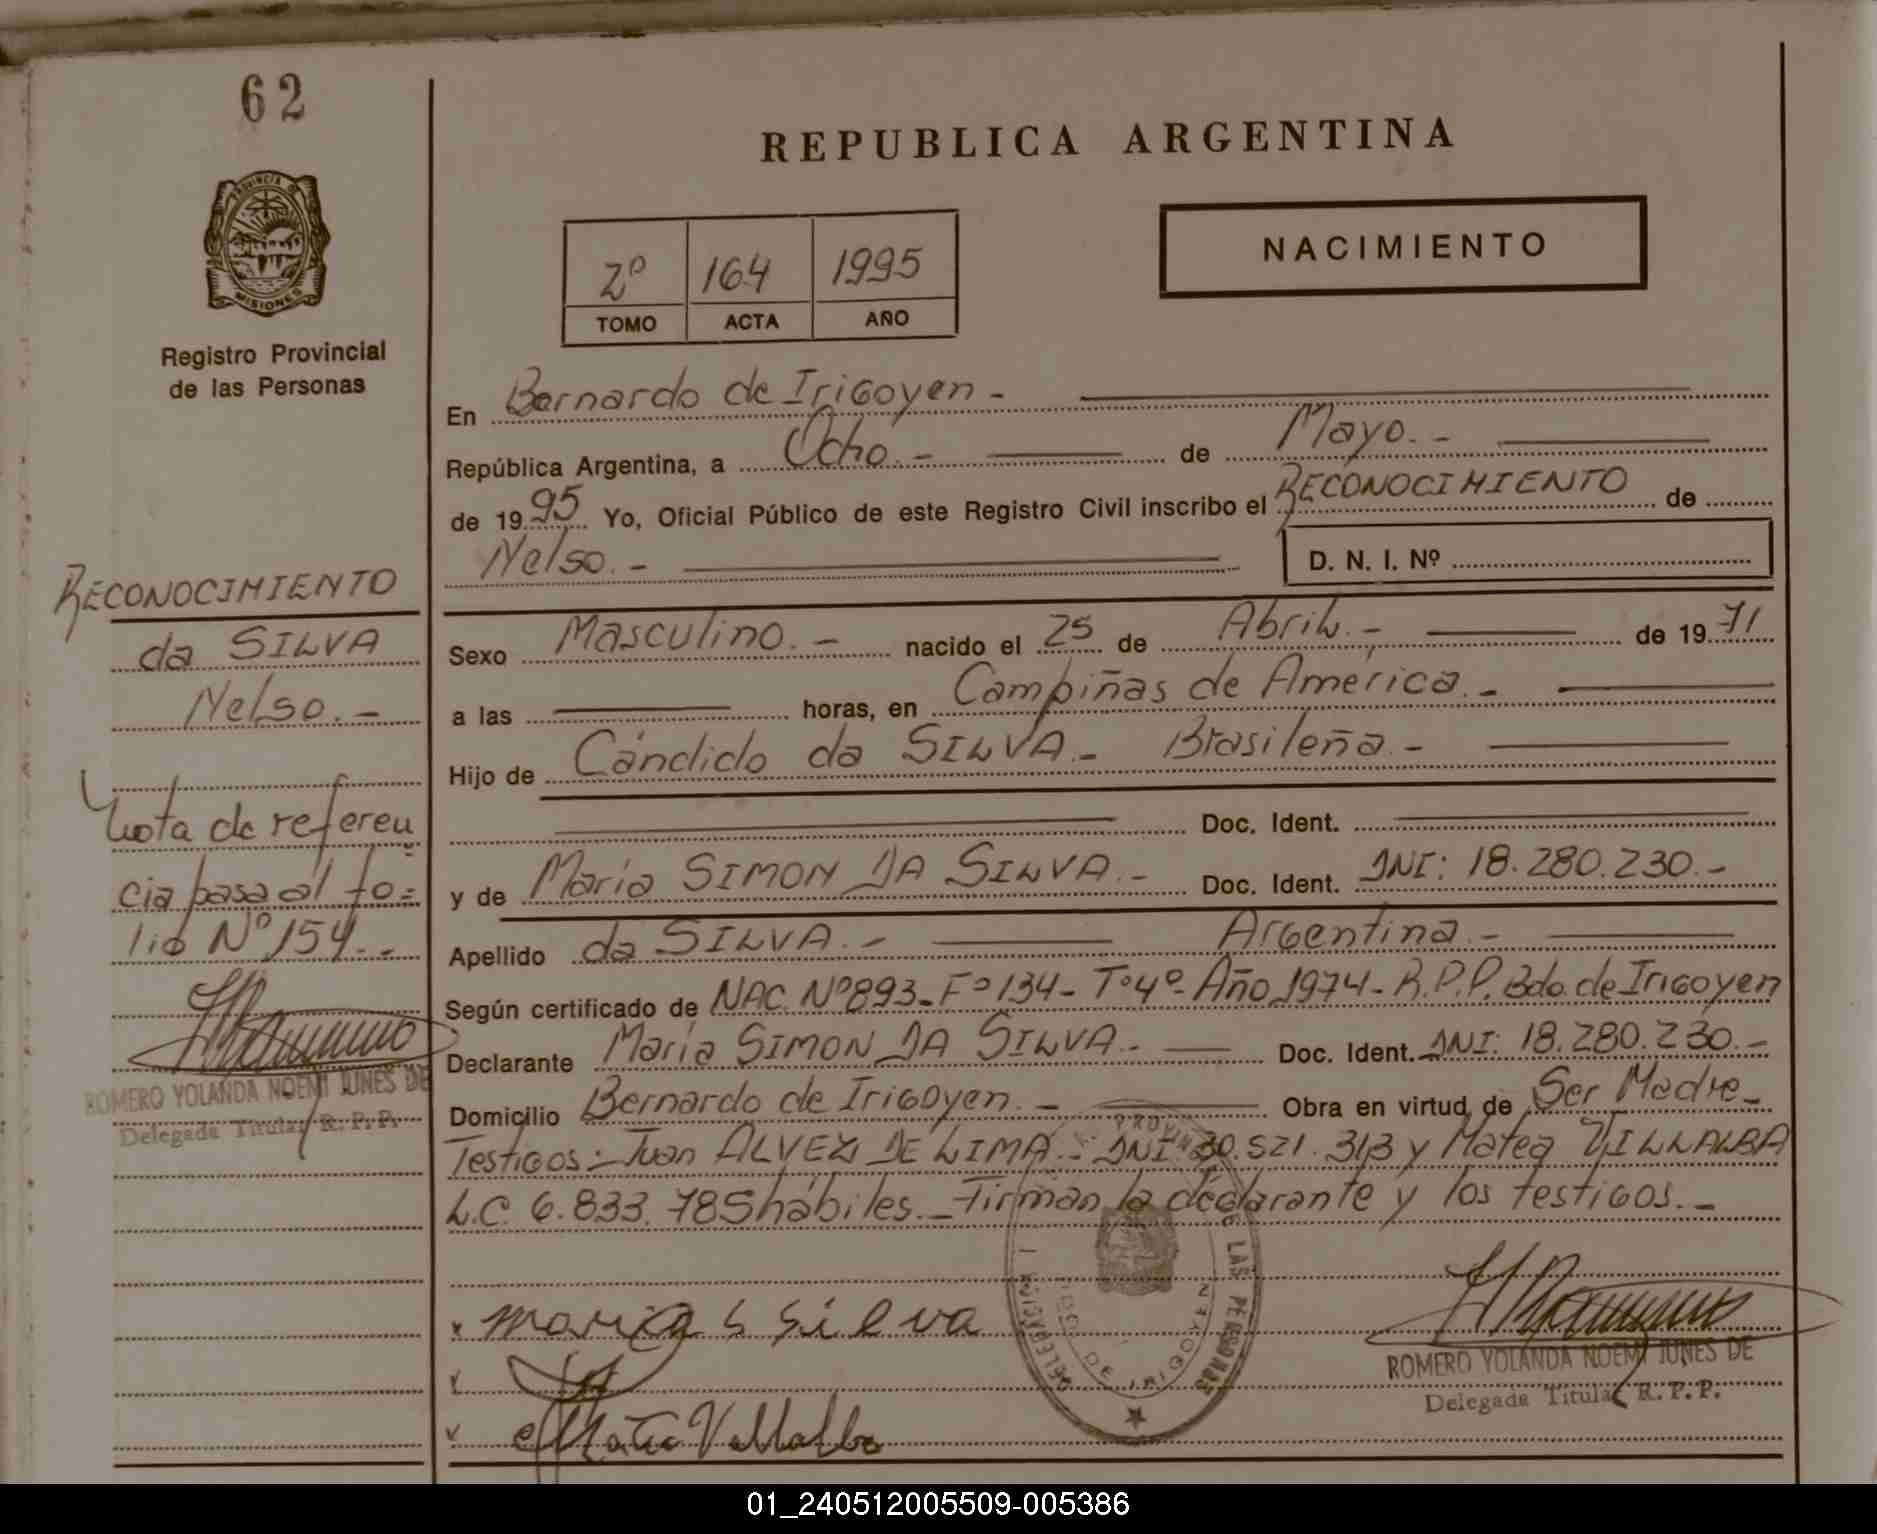 62
REPUBLICA ARGENTINA
PROVINCIA DE
MISIONES
Registro Provincial
de las Personas
2º 164 1995
TOMO ACTA AÑO
NACIMIENTO
En Bernardo de Irigoyen.-
República Argentina, a Ocho.- de Mayo.-
de 1995 Yo, Oficial Público de este Registro Civil inscribo el RECONOCIMIENTO de
Nelso.- D. N. I. Nº
RECONOCIMIENTO
da SILVA
Nelso.-
Nota de referen
cia pasa al fo=
lio Nº 154.-
ROMERO YOLANDA NOEMI JUNES DE
Delegada Titular R. P. P.
Sexo Masculino.- nacido el 25 de Abril.- de 1971
a las horas, en Campiñas de América.-
Hijo de Cándido da SILVA.- Brasileña.-
Doc. Ident.
y de María SIMON DA SILVA.- Doc. Ident. DNI: 18.280.230.-
Apellido da SILVA.- Argentina.-
Según certificado de NAC. Nº 893- Fº 134- Tº 4º- Año 1974- R.P.P. Bdo. de Irigoyen
Declarante María SIMON DA SILVA.- Doc. Ident. DNI: 18.280.230.-
Domicilio Bernardo de Irigoyen.- Obra en virtud de Ser Madre-
Testigos:- Juan ALVEZ DE LIMA.- DNI: 30.521.313 y Matea VILLALBA
L.C. 6.833.785 hábiles.- Firman la declarante y los testigos.-
maria s silva
Matea Vallalba
DE LAS PERSONAS
DELEGACION
DE IRIGOYEN
ROMERO YOLANDA NOEMI JUNES DE
Delegada Titular R. P. P.
01_240512005509-005386